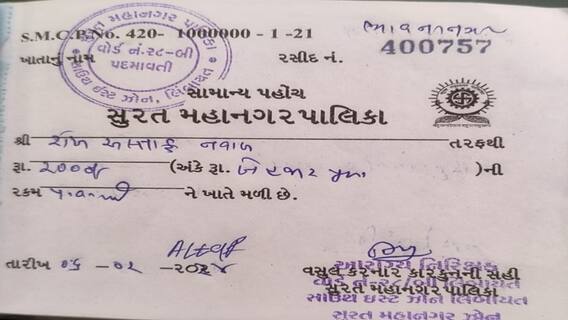 S.M.C.P.No. 420- 1000000 - 1 -21
ભાવનાનગર
400757
ખાતાનું નામ
રસીદ નં.
મહાનગર પાલિકા
વોર્ડ નં.૨૮-બી
પદમાવતી
સાઉથ ઇસ્ટ ઝોન, લિંબાયત
સામાન્ય પહોંચ
સુરત મહાનગરપાલિકા
શ્રી શેખ અલ્તાફ નવાબ તરફથી
રૂા. ૨૦૦૦/ (અંકે રૂા. બે હજાર પુરા )ની
રકમ ને ખાતે મળી છે.
Altaf
તારીખ ૦૬ -૦૨ -૨૦૨૪
આરોગ્ય નિરિક્ષક
વસુલ કરનાર કારકુનની સહી
વોર્ડ નં-૨૮/બી લિંબાયત
સુરત મહાનગરપાલિકા
સાઉથ ઇસ્ટ ઝોન લિંબાયત
સુરત મહાનગર ઝોન